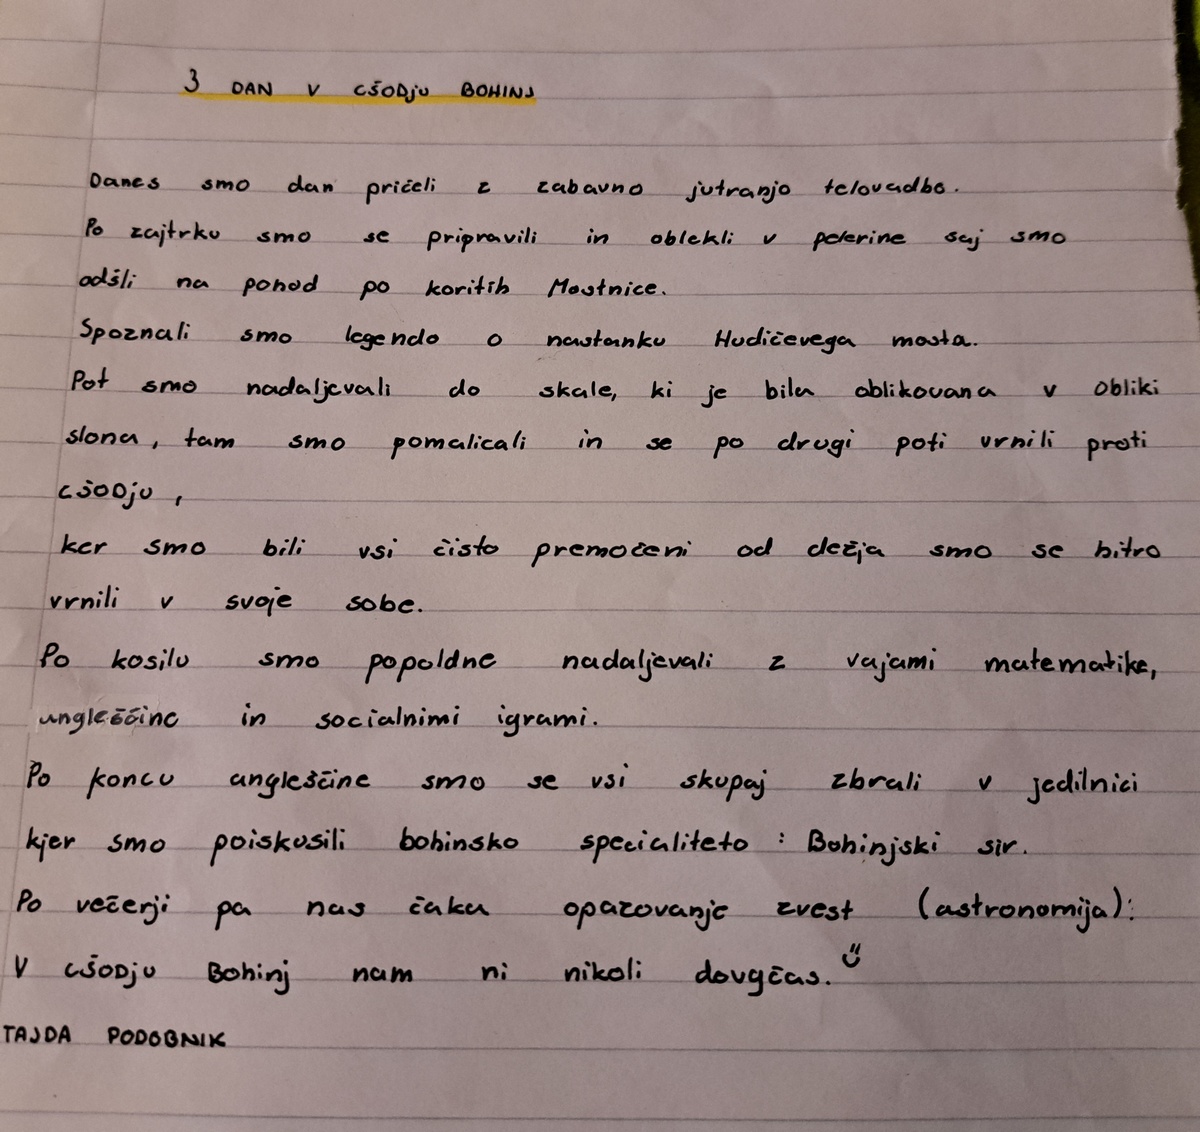 3 DAN V CŠODju BOHINJ
Danes smo dan pričeli z zabavno jutranjo telovadbo.
Po zajtrku smo se pripravili in oblekli v pelerine saj smo
odšli na pohod po koritih Mostnice.
Spoznali smo legendo o nastanku Hudičevega mosta.
Pot smo nadaljevali do skale, ki je bila oblikovana v obliki
slona, tam smo pomalicali in se po drugi poti vrnili proti
CŠODju,
ker smo bili vsi čisto premočeni od dežja smo se hitro
vrnili v svoje sobe.
Po kosilu smo popoldne nadaljevali z vajami matematike,
angleščine in socialnimi igrami.
Po koncu angleščine smo se vsi skupaj zbrali v jedilnici
kjer smo poiskusili bohinsko specialiteto : Bohinjski sir.
Po večerji pa nas čaka opazovanje zvest (astronomija).
V CŠODju Bohinj nam ni nikoli dovgčas.
TAJDA PODOBNIK